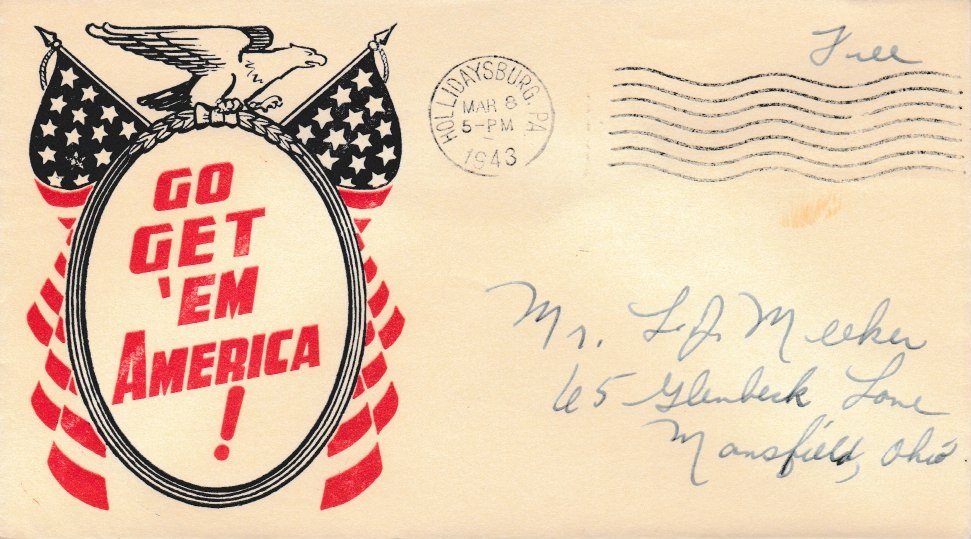 GO
GET
'EM
AMERICA
!
HOLLIDAYSBURG. PA
MAR 8
5-PM
1943
Free
Mr. L. J. Meeker
65 Glenbeck Lane
Mansfield, Ohio